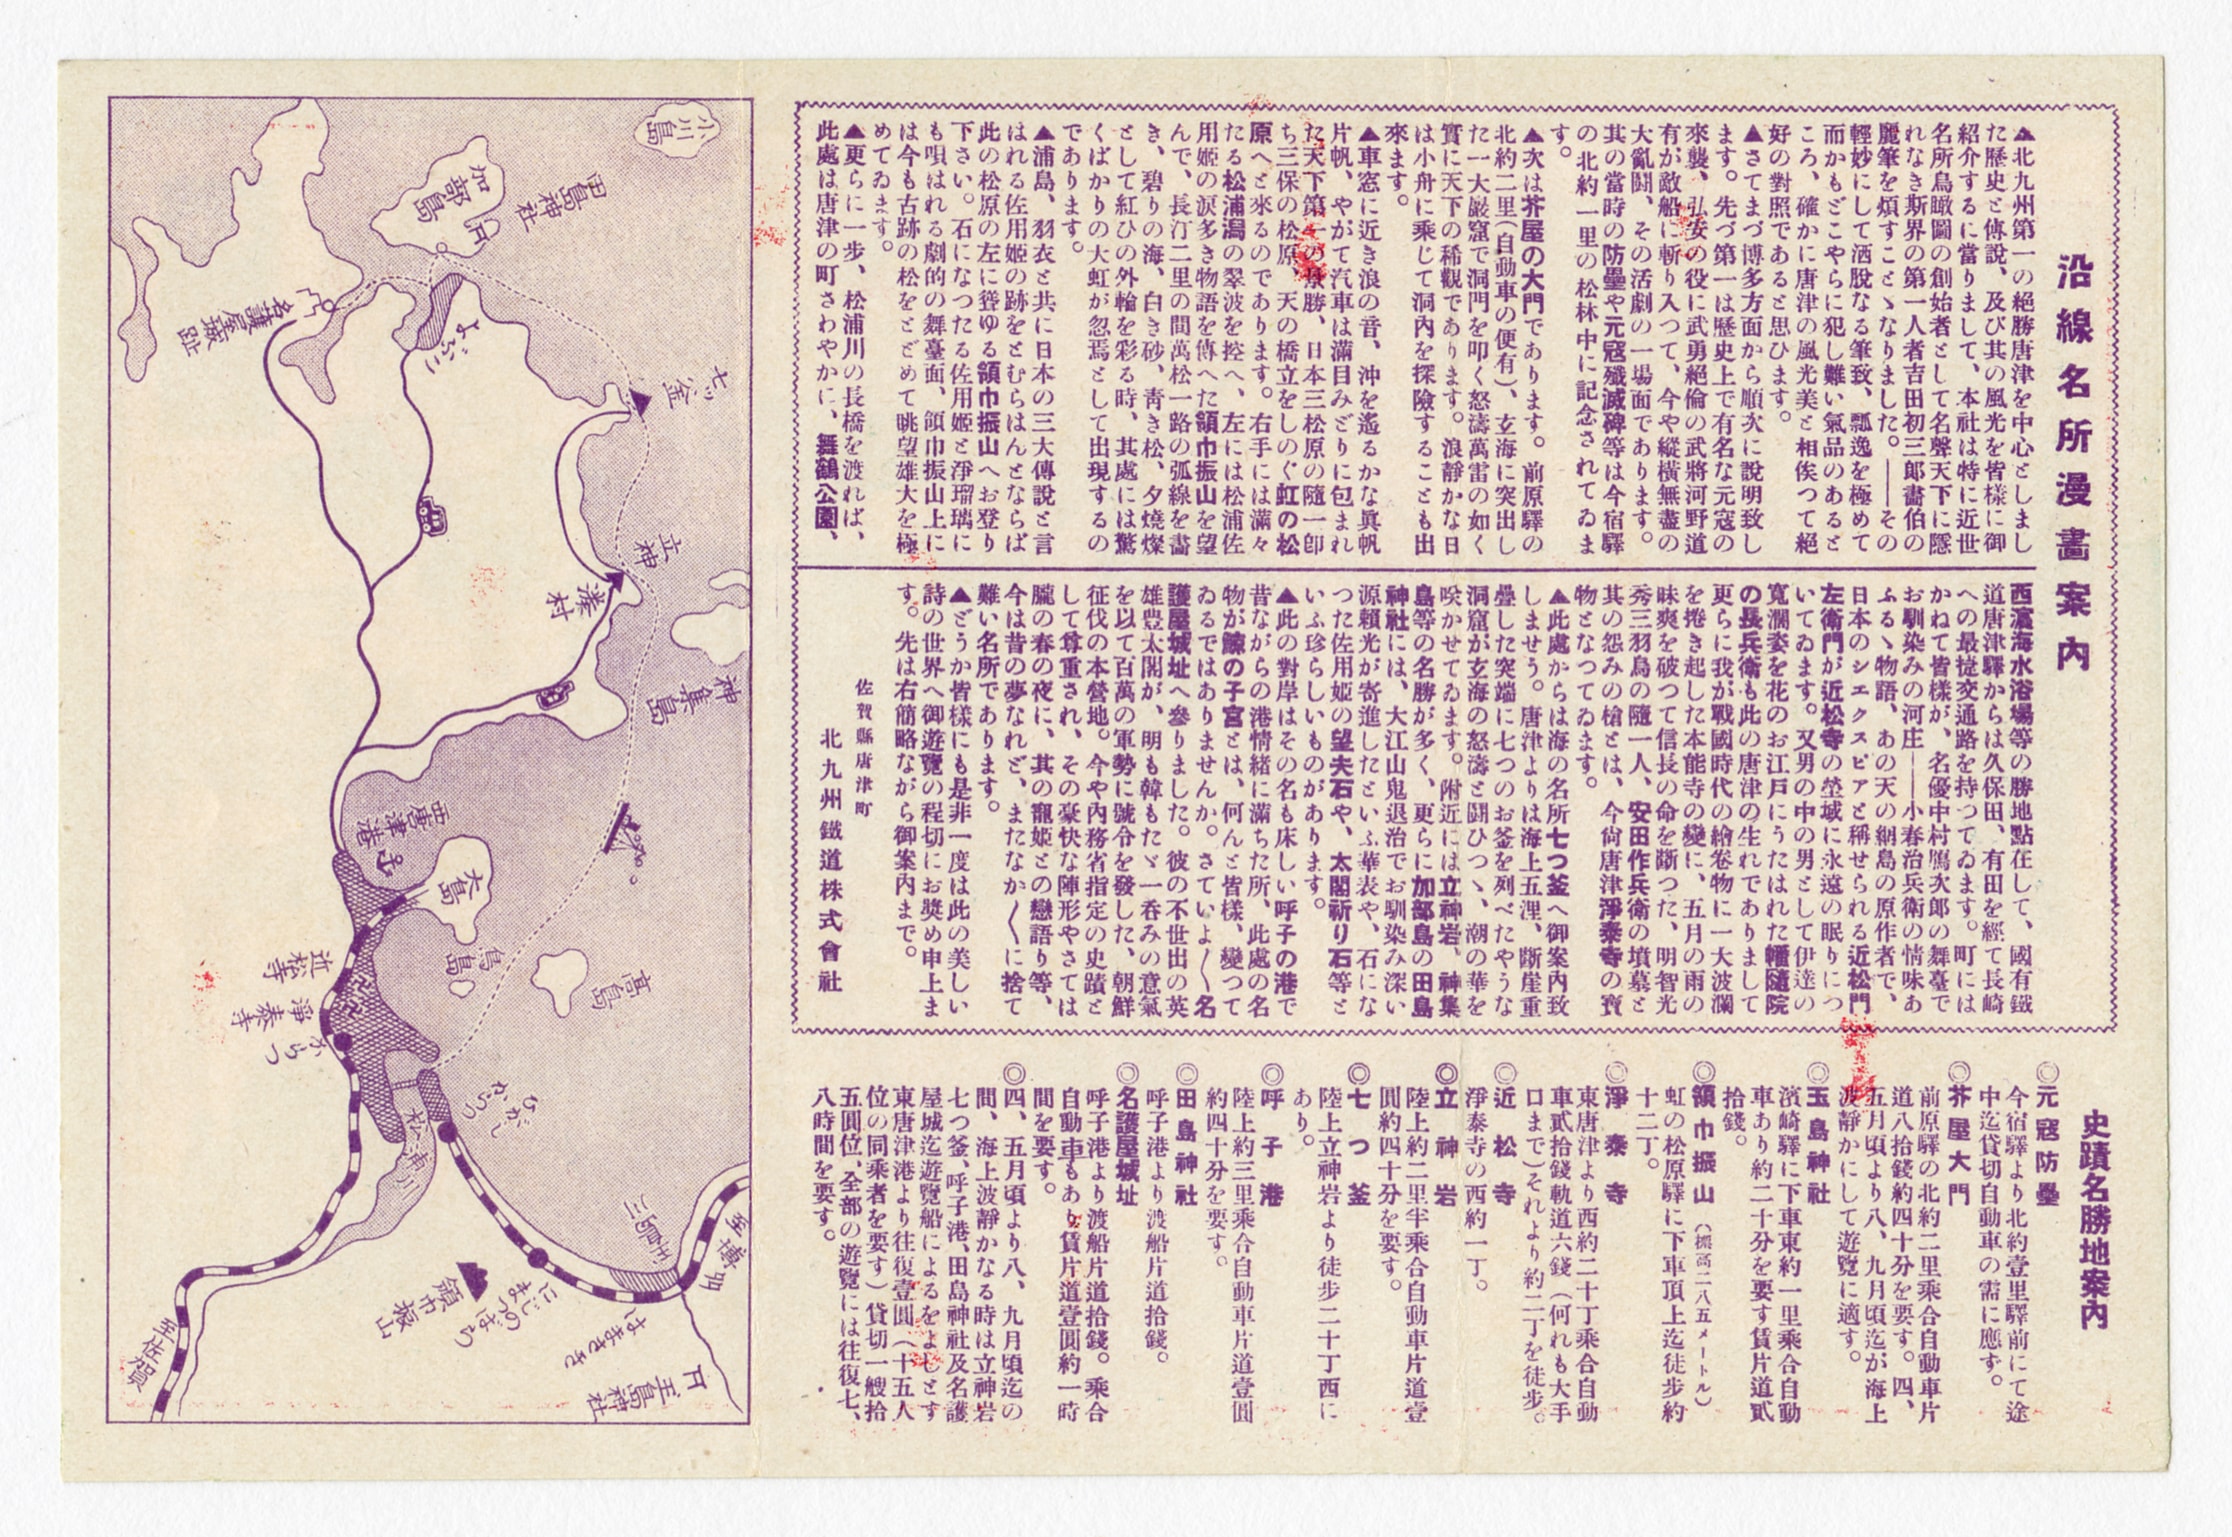 沿線名所漫畵案內
▲北九州第一の絕勝唐津を中心としまし
た歷史と傳說、及び其の風光を皆樣に御
紹介するに當りまして、本社は特に近世
名所鳥瞰圖の創始者として名聲天下に隱
れなき斯界の第一人者吉田初三郎畵伯の
麗筆を煩すことゝなりました。――その
輕妙にして洒脫なる筆致、瓢逸を極めて
而かもどこやらに犯し難い氣品のあると
ころ、確かに唐津の風光美と相俟つて絕
好の對照であると思ひます。
▲さてまづ博多方面から順次に說明致し
ます。先づ第一は歷史上で有名な元寇の
來襲、弘安の役に武勇絕倫の武將河野道
有が敵船に斬り入つて、今や縱橫無盡の
大亂鬪、その活劇の一場面であります。
其の當時の防壘や元寇殲滅碑等は今宿驛
の北約一里の松林中に記念されてゐま
す。
▲次は芥屋の大門であります。前原驛の
北約二里(自動車の便有)、玄海に突出し
た一大巖窟で洞門を叩く怒濤萬雷の如く
實に天下の稀觀であります。浪靜かな日
は小舟に乘じて洞內を探險することも出
來ます。
▲車窓に近き浪の音、沖を遙るかな眞帆
片帆、やがて汽車は滿目みどりに包まれ
た天下第一の景勝、日本三松原の隨一卽
ち三保の松原、天の橋立をしのぐ虹の松
原へと來るのであります。右手には滿々
たる松浦潟の翠波を控へ、左には松浦佐
用姬の淚多き物語を傳へた領巾振山を望
んで、長汀二里の間萬松一路の弧線を畵
き、碧りの海、白き砂、靑き松、夕燒燦
として紅ひの外輪を彩る時、其處には驚
くばかりの大虹が忽焉として出現するの
であります。
▲浦島、羽衣と共に日本の三大傳說と言
はれる佐用姬の跡をとむらはんとならば
此の松原の左に聳ゆる領巾振山へお登り
下さい。石になつたる佐用姬と淨瑠璃に
も唄はれる劇的の舞臺面、領巾振山上に
は今も古跡の松をとどめて眺望雄大を極
めてゐます。
▲更らに一步、松浦川の長橋を渡れば、
此處は唐津の町さわやかに、舞鶴公園、
西濱海水浴場等の勝地點在して、國有鐵
道唐津驛からは久保田、有田を經て長崎
への最捷交通路を持つてゐます。町には
かねて皆樣が、名優中村鴈次郎の舞臺で
お馴染みの河庄――小春治兵衛の情味あ
ふるゝ物語、あの天の網島の原作者で、
日本のシエクスピアと稱せられる近松門
左衛門が近松寺の塋域に永遠の眠りにつ
いてゐます。又男の中の男として伊達の
寬濶姿を花のお江戸にうたはれた幡隨院
の長兵衛も此の唐津の生れでありまして
更らに我が戰國時代の繪卷物に一大波瀾
を捲き起した本能寺の變に、五月の雨の
昧爽を破つて信長の命を斷つた、明智光
秀三羽烏の隨一人、安田作兵衛の墳墓と
其の怨みの槍とは、今尙唐津淨泰寺の寶
物となつてゐます。
▲此處からは海の名所七つ釜へ御案內致
しませう。唐津よりは海上五浬、斷崖重
疊した突端に七つのお釜を列べたやうな
洞窟が玄海の怒濤と鬪ひつゝ、潮の華を
咲かせてゐます。附近には立神岩、神集
島等の名勝が多く、更らに加部島の田島
神社には、大江山鬼退治でお馴染み深い
源賴光が寄進したといふ華表や、石にな
つた佐用姬の望夫石や、太閤祈り石等と
いふ珍らしいものがあります。
▲此の對岸はその名も床しい呼子の港で
昔ながらの港情緖に滿ちた所、此處の名
物が鯨の子宮とは、何んと皆樣、變つて
ゐるではありませんか。さていよ〱名
護屋城址へ參りました。彼の不世出の英
雄豐太閤が、明も韓もたゞ一吞みの意氣
を以て百萬の軍勢に號令を發した、朝鮮
征伐の本營地。今や內務省指定の史蹟と
して尊重され、その豪快な陣形やさては
朧の春の夜に、其の寵姬との戀語り等、
今は昔の夢なれど、またなか〱に捨て
難い名所であります。
▲どうか皆樣にも是非一度は此の美しい
詩の世界へ御遊覽の程切にお奬め申上ま
す。先は右簡略ながら御案內まで。
佐賀縣唐津町
北九州鐵道株式會社
史蹟名勝地案內
◎元寇防壘
今宿驛より北約壹里驛前にて途
中迄貸切自動車の需に應ず。
◎芥屋大門
前原驛の北約二里乘合自動車片
道八拾錢約四十分を要す。四、
五月頃より八、九月頃迄が海上
波靜かにして遊覽に適す。
◎玉島神社
濱崎驛に下車東約一里乘合自動
車あり約二十分を要す賃片道貳
拾錢。
◎領巾振山(標高二八五メートル)
虹の松原驛に下車頂上迄徒步約
十二丁。
◎淨泰寺
東唐津より西約二十丁乘合自動
車貳拾錢軌道六錢(何れも大手
口まで)それより約二丁を徒步。
◎近松寺
淨泰寺の西約一丁。
◎立神岩
陸上約二里半乘合自動車片道壹
圓約四十分を要す。
◎七つ釜
陸上立神岩より徒步二十丁西に
あり。
◎呼子港
陸上約三里乘合自動車片道壹圓
約四十分を要す。
◎田島神社
呼子港より渡船片道拾錢。
◎名護屋城址
呼子港より渡船片道拾錢。乘合
自動車もあり賃片道壹圓約一時
間を要す。
◎四、五月頃より八、九月頃迄の
間、海上波靜かなる時は立神岩
七つ釜、呼子港、田島神社及名護
屋城迄遊覽船によるをよしとす
東唐津港より往復壹圓(十五人
位の同乘者を要す)貸切一艘拾
五圓位、全部の遊覽には往復七、
八時間を要す。
小川島
田島神社
加部島
名護屋城址
よぶこ
七ッ釜
立神
湊村
神集島
西唐津港
大島
鳥島
高島
近松寺
淨泰寺
からつ
ひがしからつ
松浦川
至博多
領巾振山
にじのまつばら
はまさき
玉島神社
至佐賀